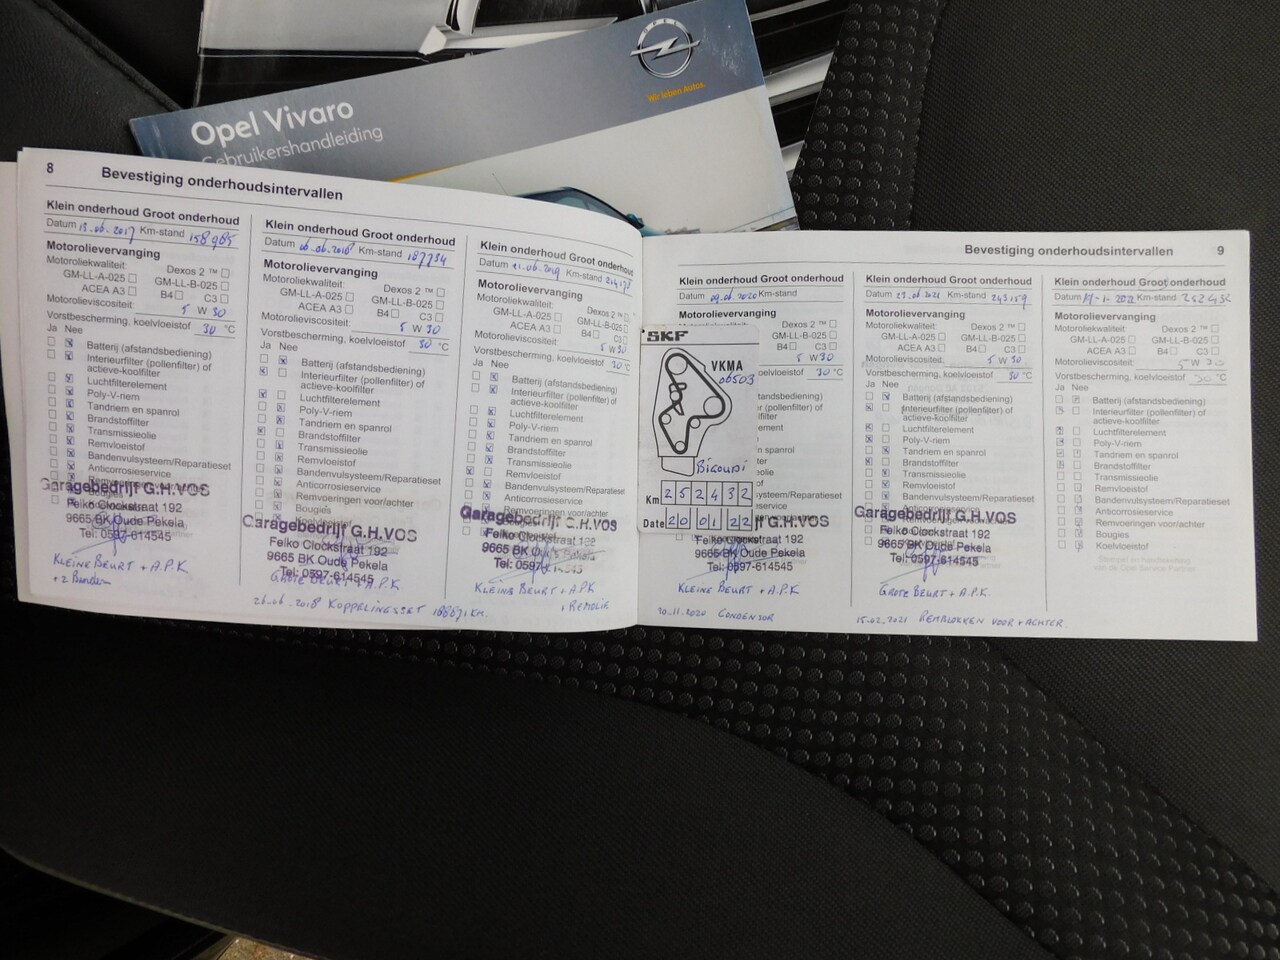 OPEL
Wir leben Autos.
Opel Vivaro
Gebruikershandleiding
8
Bevestiging onderhoudsintervallen
Klein onderhoud Groot onderhoud
Datum 13.06.2017 Km-stand 158985
Motorolievervanging
Motoroliekwaliteit: Dexos 2 ™
GM-LL-A-025 GM-LL-B-025
ACEA A3 B4 C3
Motorolieviscositeit: 5 W 30
Vorstbescherming, koelvloeistof 30 °C
Ja Nee
Batterij (afstandsbediening)
Interieurfilter (pollenfilter) of
actieve-koolfilter
Luchtfilterelement
Poly-V-riem
Tandriem en spanrol
Brandstoffilter
Transmissieolie
Remvloeistof
Bandenvulsysteem/Reparatieset
Anticorrosieservice
Garagebedrijf G.H.VOS
Feiko Clockstraat 192
9665 BK Oude Pekela
Tel: 0597-614545
KLEINE BEURT + A.P.K
+ 2 Banden
Klein onderhoud Groot onderhoud
Datum 06.06.2018 Km-stand 187734
Motorolievervanging
Motoroliekwaliteit: Dexos 2 ™
GM-LL-A-025 GM-LL-B-025
ACEA A3 B4 C3
Motorolieviscositeit: 5 W 30
Vorstbescherming, koelvloeistof 30 °C
Ja Nee
Batterij (afstandsbediening)
Interieurfilter (pollenfilter) of
actieve-koolfilter
Luchtfilterelement
Poly-V-riem
Tandriem en spanrol
Brandstoffilter
Transmissieolie
Remvloeistof
Bandenvulsysteem/Reparatieset
Anticorrosieservice
Remvoeringen voor/achter
Bougies
Garagebedrijf G.H.VOS
Feiko Clockstraat 192
9665 BK Oude Pekela
Tel: 0597-614545
GROTE BEURT + A.P.K
26.06.2018 KOPPELINGSSET 188671 KM.
Klein onderhoud Groot onderhoud
Datum 21.06.2019 Km-stand
Motorolievervanging
Motoroliekwaliteit: Dexos 2 ™
GM-LL-A-025 GM-LL-B-025
ACEA A3 B4 C3
Motorolieviscositeit: 5 W 30
Vorstbescherming, koelvloeistof 30 °C
Ja Nee
Batterij (afstandsbediening)
Interieurfilter (pollenfilter) of
actieve-koolfilter
Luchtfilterelement
Poly-V-riem
Tandriem en spanrol
Brandstoffilter
Transmissieolie
Remvloeistof
Bandenvulsysteem/Reparatieset
Anticorrosieservice
Remvoeringen voor/achter
Garagebedrijf G.H.VOS
Feiko Clockstraat 192
9665 BK Oude Pekela
Tel: 0597-614545
KLEINE BEURT + A.P.K
+ REMOLIE
Bevestiging onderhoudsintervallen
9
Klein onderhoud Groot onderhoud
Datum 09.06.2020 Km-stand
Dexos 2 ™
GM-LL-B-025
B4 C3
5 W 30
koelvloeistof 30 °C
SKF
VKMA
06503
Bigoudi
Km 252432
Date 20 01 22
G.H.VOS
Feiko Clockstraat 192
9665 BK Oude Pekela
Tel: 0597-614545
KLEINE BEURT + A.P.K
30.11.2020 CONDENSOR
Klein onderhoud Groot onderhoud
Datum 23.06.2021 Km-stand 243159
Motorolievervanging
Motoroliekwaliteit: Dexos 2 ™
GM-LL-A-025 GM-LL-B-025
ACEA A3 B4 C3
Motorolieviscositeit: 5 W 30
Vorstbescherming, koelvloeistof 30 °C
Ja Nee
Batterij (afstandsbediening)
Interieurfilter (pollenfilter) of
actieve-koolfilter
Luchtfilterelement
Poly-V-riem
Tandriem en spanrol
Brandstoffilter
Transmissieolie
Remvloeistof
Bandenvulsysteem/Reparatieset
Anticorrosieservice
Garagebedrijf G.H.VOS
Feiko Clockstraat 192
9665 BK Oude Pekela
Tel: 0597-614545
GROTE BEURT + A.P.K.
15.02.2021 REMBLOKKEN VOOR + ACHTER
Klein onderhoud Groot onderhoud
Datum Km-stand 252432
Motorolievervanging
Motoroliekwaliteit: Dexos 2 ™
GM-LL-A-025 GM-LL-B-025
ACEA A3 B4 C3
Motorolieviscositeit: 5 W 30
Vorstbescherming, koelvloeistof 30 °C
Ja Nee
Batterij (afstandsbediening)
Interieurfilter (pollenfilter) of
actieve-koolfilter
Luchtfilterelement
Poly-V-riem
Tandriem en spanrol
Brandstoffilter
Transmissieolie
Remvloeistof
Bandenvulsysteem/Reparatieset
Anticorrosieservice
Remvoeringen voor/achter
Bougies
Koelvloeistof